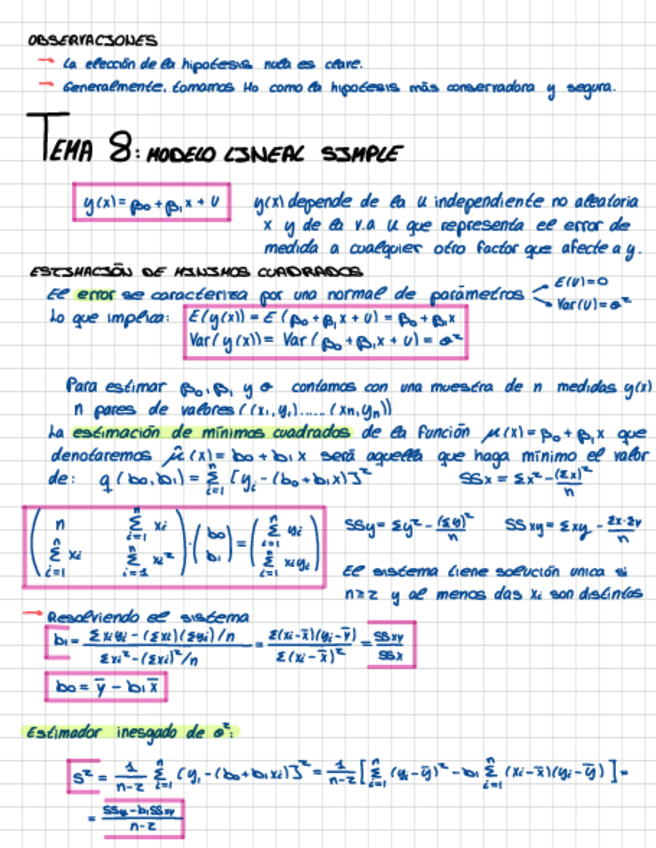 OBSERVACIONES
→ La elección de la hipótesis nula es clave.
→ Generalmente, tomamos H₀ como la hipótesis más conservadora y segura.
TEMA 8: MODELO LINEAL SIMPLE
y(x) = β₀ + β₁x + U
y(x) depende de la u independiente no aleatoria
x y de la v.a U que representa el error de
medida a cualquier otro factor que afecte a y.
ESTIMACIÓN DE MÍNIMOS CUADRADOS
El error se caracteriza por una normal de parámetros E(U)=0
Var(U)=σ²
Lo que implica: E(y(x)) = E(β₀ + β₁x + U) = β₀ + β₁x
Var(y(x)) = Var(β₀ + β₁x + U) = σ²
Para estimar β₀, β₁ y σ contamos con una muestra de n medidas y(x)
n pares de valores ((x₁,y₁)......(xn,yn))
La estimación de mínimos cuadrados de la función μ(x) = β₀ + β₁x que
denotaremos μ̂(x) = b₀ + b₁x será aquella que haga mínimo el valor
de: q(b₀,b₁) = Σⁿᵢ₌₁ [yᵢ - (b₀ + b₁x)]² SSx = Σx² - (Σx)²/n
( n Σⁿᵢ₌₁ xᵢ ; Σⁿᵢ₌₁ xᵢ Σⁿᵢ₌₁ xᵢ² ) · ( b₀ ; b₁ ) = ( Σⁿᵢ₌₁ yᵢ ; Σⁿᵢ₌₁ xᵢyᵢ )
SSy = Σy² - (Σy)²/n SSxy = Σxy - Σx·Σy/n
El sistema tiene solución unica si
n≥2 y al menos das xᵢ son distintos
→ Resolviendo el sistema
b₁ = Σxᵢyᵢ - (Σxᵢ)(Σyᵢ)/n / Σxᵢ² - (Σxᵢ)²/n = Σ(xᵢ-x̄)(yᵢ-ȳ) / Σ(xᵢ-x̄)² = SSxy / SSx
b₀ = ȳ - b₁x̄
Estimador inesgado de σ²:
S² = 1/n-2 Σⁿᵢ₌₁ (yᵢ - (b₀ + b₁xᵢ)]² = 1/n-2 [Σⁿᵢ₌₁ (yᵢ-ȳ)² - b₁ Σⁿᵢ₌₁ (xᵢ-x̄)(yᵢ-ȳ)] =
= SSy - b₁SSxy / n-2